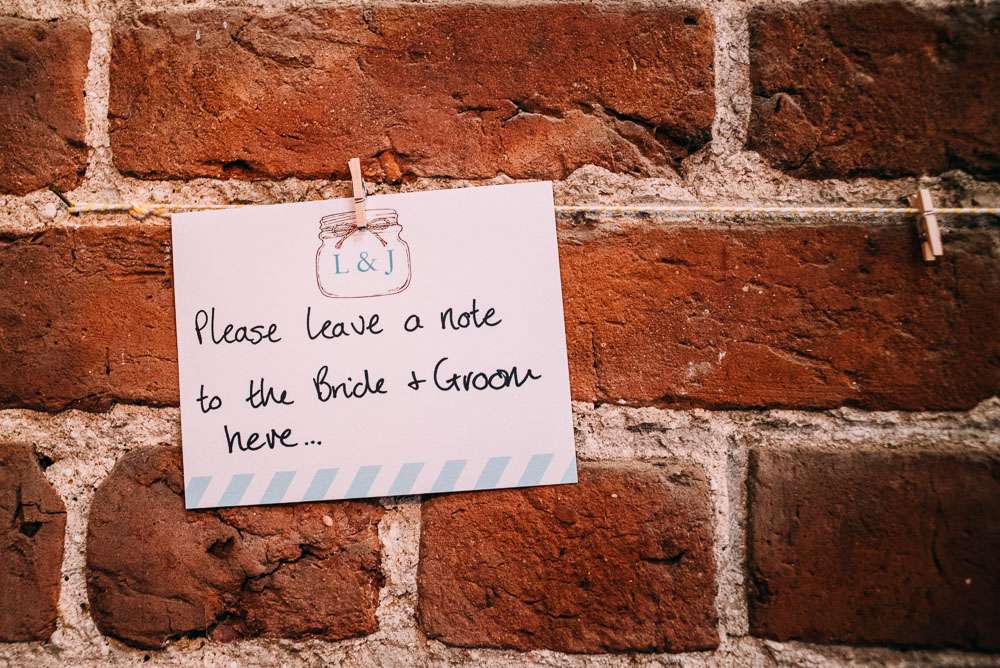 L & J
Please leave a note
to the Bride + Groom
here...